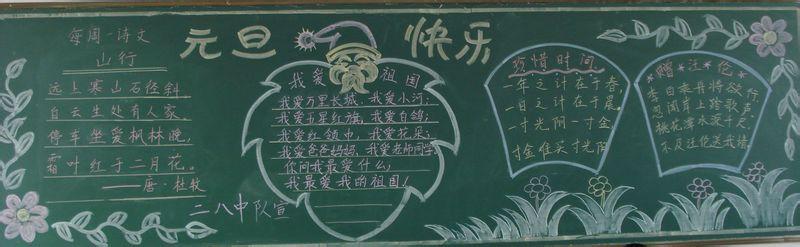 元旦 快乐
每周一诗文
山行
远上寒山石径斜
白云生处有人家
停车坐爱枫林晚，
霜叶红于二月花。
——唐·杜牧
我爱祖国
我爱万里长城，我爱小河；
我爱五星红旗，我爱白鸽；
我爱红领巾，我爱花朵；
我爱爸爸妈妈，我爱老师同学
你问我最爱什么，
我最爱我的祖国！
二八中队宣
珍惜时间
一年之计在于春，
一日之计在于晨。
一寸光阴一寸金，
寸金难买寸光阴
赠汪伦
李白乘舟将欲行
忽闻岸上踏歌声
桃花潭水深千尺
不及汪伦送我情